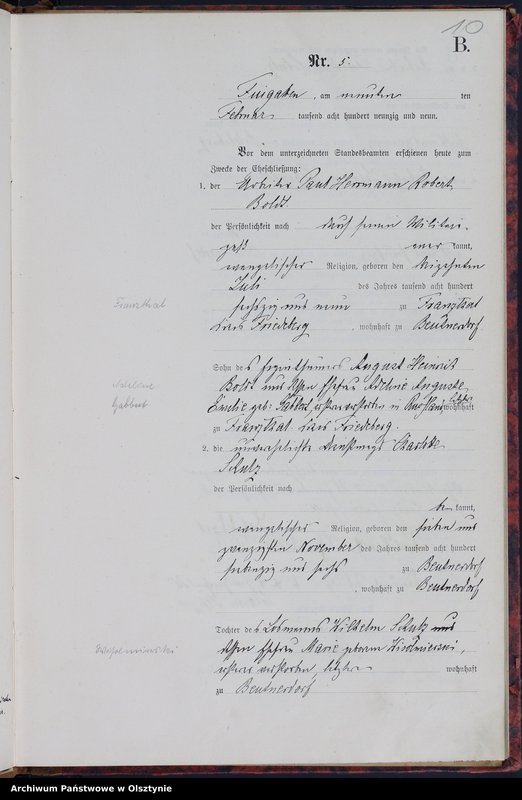 10
B.
Nr. 5.
Fuigatten, am neunten ten
Februar tausend acht hundert neunzig und neun.
Vor dem unterzeichneten Standesbeamten erschienen heute zum
Zwecke der Eheschließung:
1. der Arbeiter Paul Herrmann Robert
Boldt
der Persönlichkeit nach durch seinen Militair-
paß aner kannt,
evangelischer Religion, geboren den
Juli des Jahres tausend acht hundert
sechszig und neun zu Franzthal
Kreis Friedeberg, wohnhaft zu Beutnerdorf
Franzthal
Sohn des Eigenthümers August Heinrich
Boldt und dessen Ehefrau Adeline Auguste
Emilie geb. Gabbert, ersterer verstorben in Rußland, letztere wohnhaft
zu Franzthal Kreis Friedeberg.
Adeline
Gabbert
2. die unverehelichte Charlotte
Schulz
der Persönlichkeit nach
be kannt,
evangelischer Religion, geboren den sieben und
zwanzigsten November des Jahres tausend acht hundert
siebenzig und sechs zu Beutnerdorf
, wohnhaft zu Beutnerdorf
Tochter des Losmanns Wilhelm Schulz und
dessen Ehefrau Marie geborene
ersterer verstorben, letztere wohnhaft
zu Beutnerdorf
Archiwum Państwowe w Olsztynie